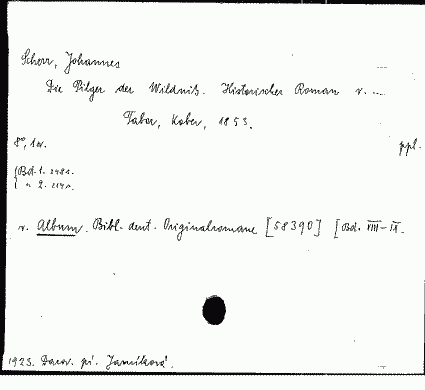 Scherr, Johannes
Die Pilger der Wildnis. Historischer Roman v. ...
Tabor, Kober, 1853.
8°, 1 sv. ppl.
(Bd. 1. 248 s.
" 2. 214 s.
v. Album. Bibl. deut. Originalromane [58390] [Bd. VIII-IX.
1923. Darov. pí. Janíková.